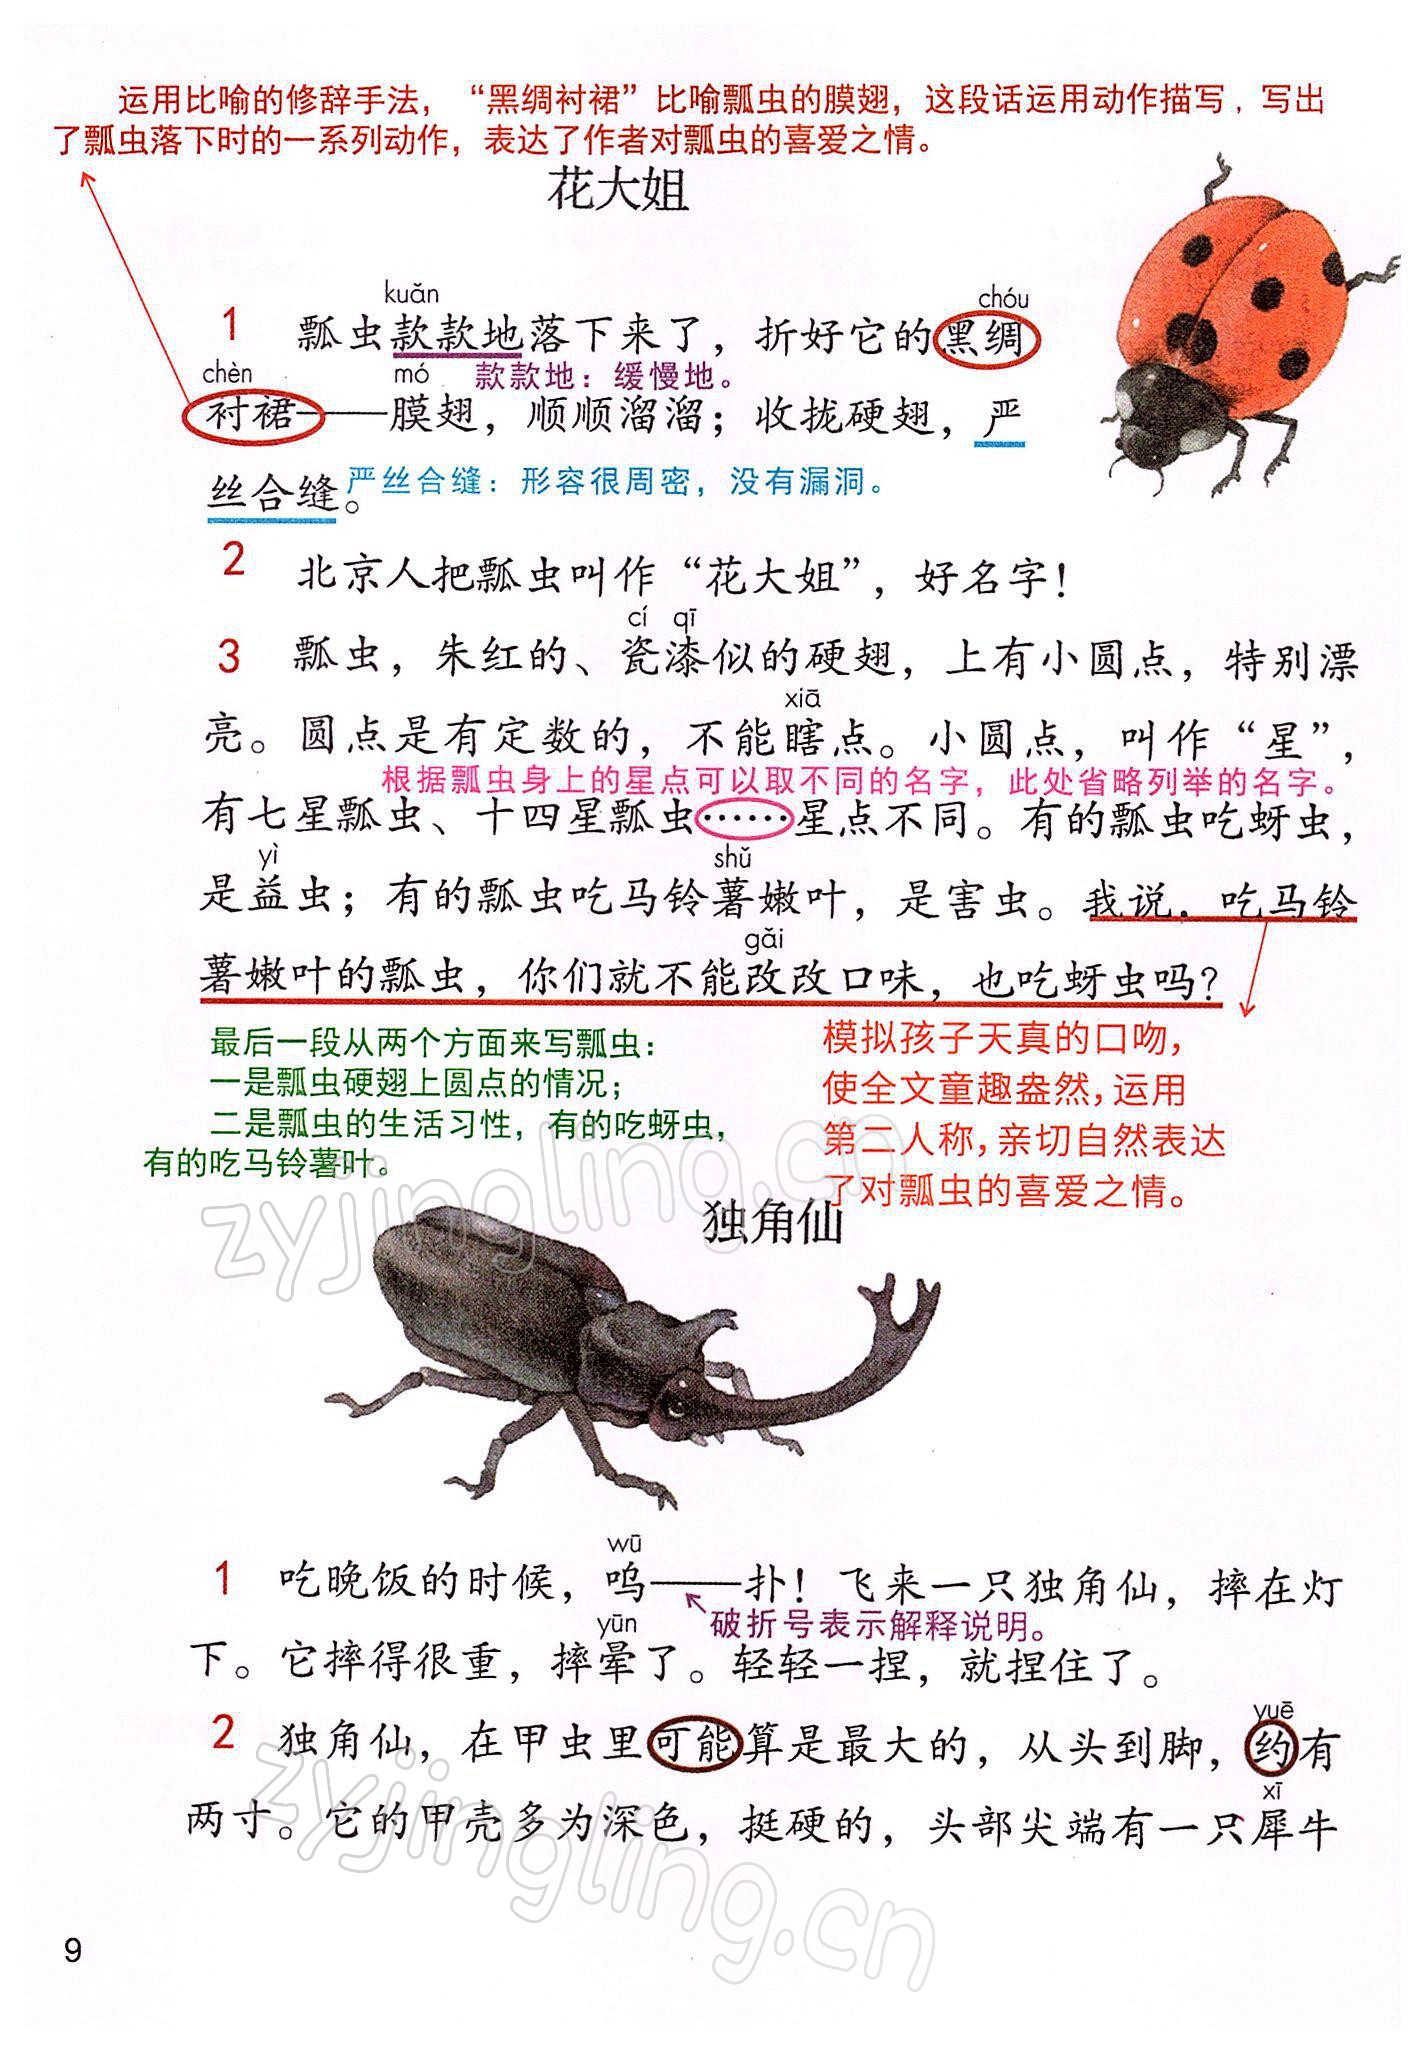 运用比喻的修辞手法，“黑绸衬裙”比喻瓢虫的膜翅，这段话运用动作描写，写出
了瓢虫落下时的一系列动作，表达了作者对瓢虫的喜爱之情。
花大姐
kuǎn chóu
1 瓢虫款款地落下来了，折好它的黑绸
chèn mó 款款地：缓慢地。
衬裙——膜翅，顺顺溜溜；收拢硬翅，严
丝合缝。严丝合缝：形容很周密，没有漏洞。
2 北京人把瓢虫叫作“花大姐”，好名字！
cí qī
3 瓢虫，朱红的、瓷漆似的硬翅，上有小圆点，特别漂
xiā
亮。圆点是有定数的，不能瞎点。小圆点，叫作“星”，
根据瓢虫身上的星点可以取不同的名字，此处省略列举的名字。
有七星瓢虫、十四星瓢虫……星点不同。有的瓢虫吃蚜虫，
yì shǔ
是益虫；有的瓢虫吃马铃薯嫩叶，是害虫。我说，吃马铃
gǎi
薯嫩叶的瓢虫，你们就不能改改口味，也吃蚜虫吗？
最后一段从两个方面来写瓢虫：
一是瓢虫硬翅上圆点的情况；
二是瓢虫的生活习性，有的吃蚜虫，
有的吃马铃薯叶。
模拟孩子天真的口吻，
使全文童趣盎然，运用
第二人称，亲切自然表达
了对瓢虫的喜爱之情。
zyjingling.cn
独角仙
wū
1 吃晚饭的时候，呜——扑！飞来一只独角仙，摔在灯
yūn 破折号表示解释说明。
下。它摔得很重，摔晕了。轻轻一捏，就捏住了。
yuē
2 独角仙，在甲虫里可能算是最大的，从头到脚，约有
xī
两寸。它的甲壳多为深色，挺硬的，头部尖端有一只犀牛
zyjingling.cn
9